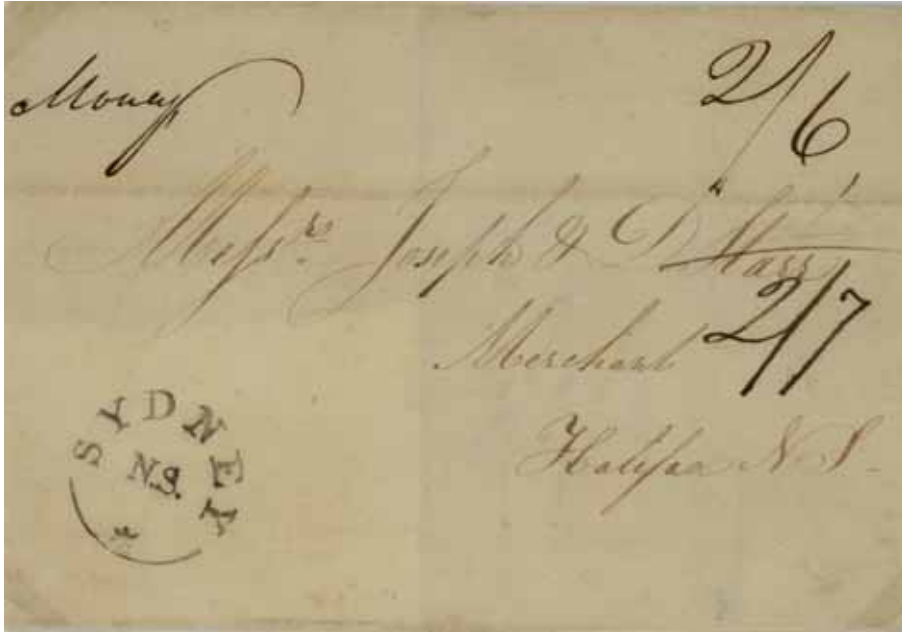 Money
2/6
Mess.rs Joseph & D Starr
2/7
Merchant
Halifax N S
SYDNEY
N.S.